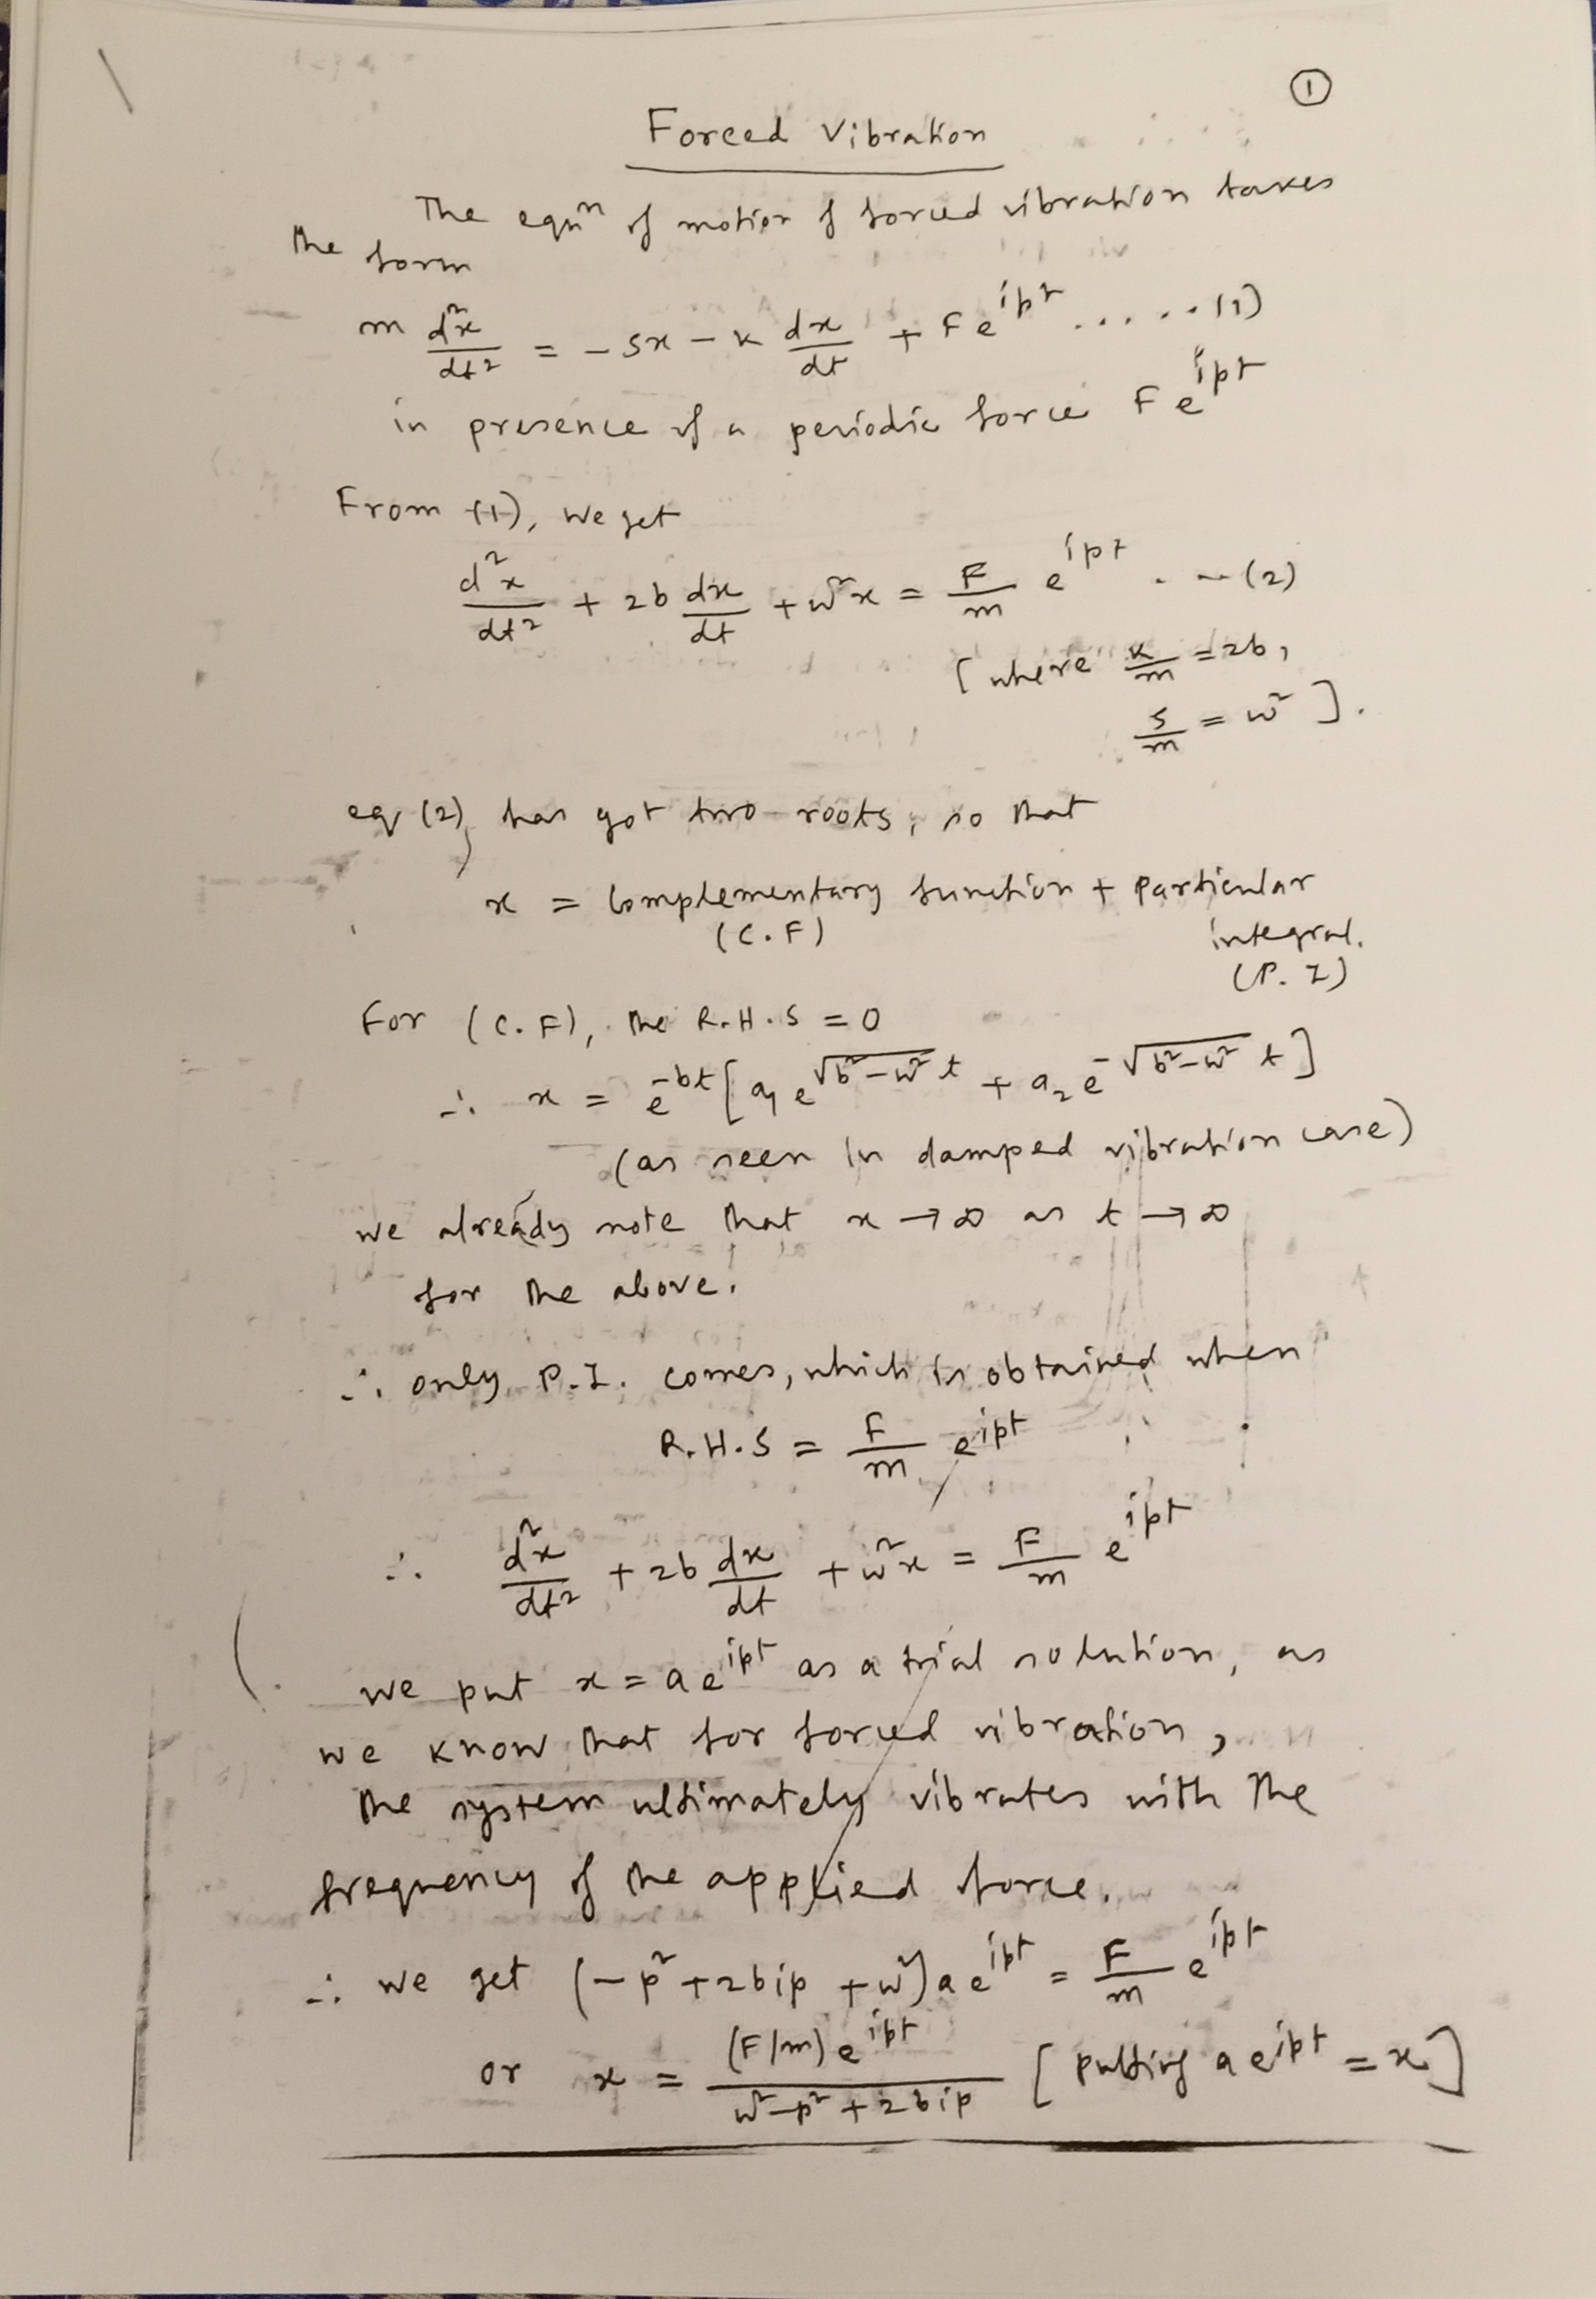 ①
Forced Vibration
The eqnⁿ of motion of forced vibration takes
the form
m d²x/dt² = - sx - k dx/dt + F e^{ipt} ..... (1)
in presence of a periodic force F e^{ipt}
From (1), we get
d²x/dt² + 2b dx/dt + ω²x = F/m e^{ipt} . -- (2)
[ where k/m = 2b,
s/m = ω² ].
eq (2), has got two roots, so that
x = Complementary function + Particular
(C.F) integral.
(P. I)
For (C.F), the R.H.S = 0
∴ x = e^{-bt} [ a₁ e^{√(b²-ω²) t} + a₂ e^{-√(b²-ω²) t} ]
(as seen in damped vibration case)
we already note that x → ∞ as t → ∞
for the above.
∴ only P.I. comes, which is obtained when
R.H.S = F/m e^{ipt}
∴ d²x/dt² + 2b dx/dt + ω²x = F/m e^{ipt}
we put x = a e^{ipt} as a trial solution, as
we know that for forced vibration,
the system ultimately vibrates with the
frequency of the applied force.
∴ we get (-p² + 2bip + ω²) a e^{ipt} = F/m e^{ipt}
or x = (F/m) e^{ipt} / ω²-p² + 2bip [ putting a e^{ipt} = x ]